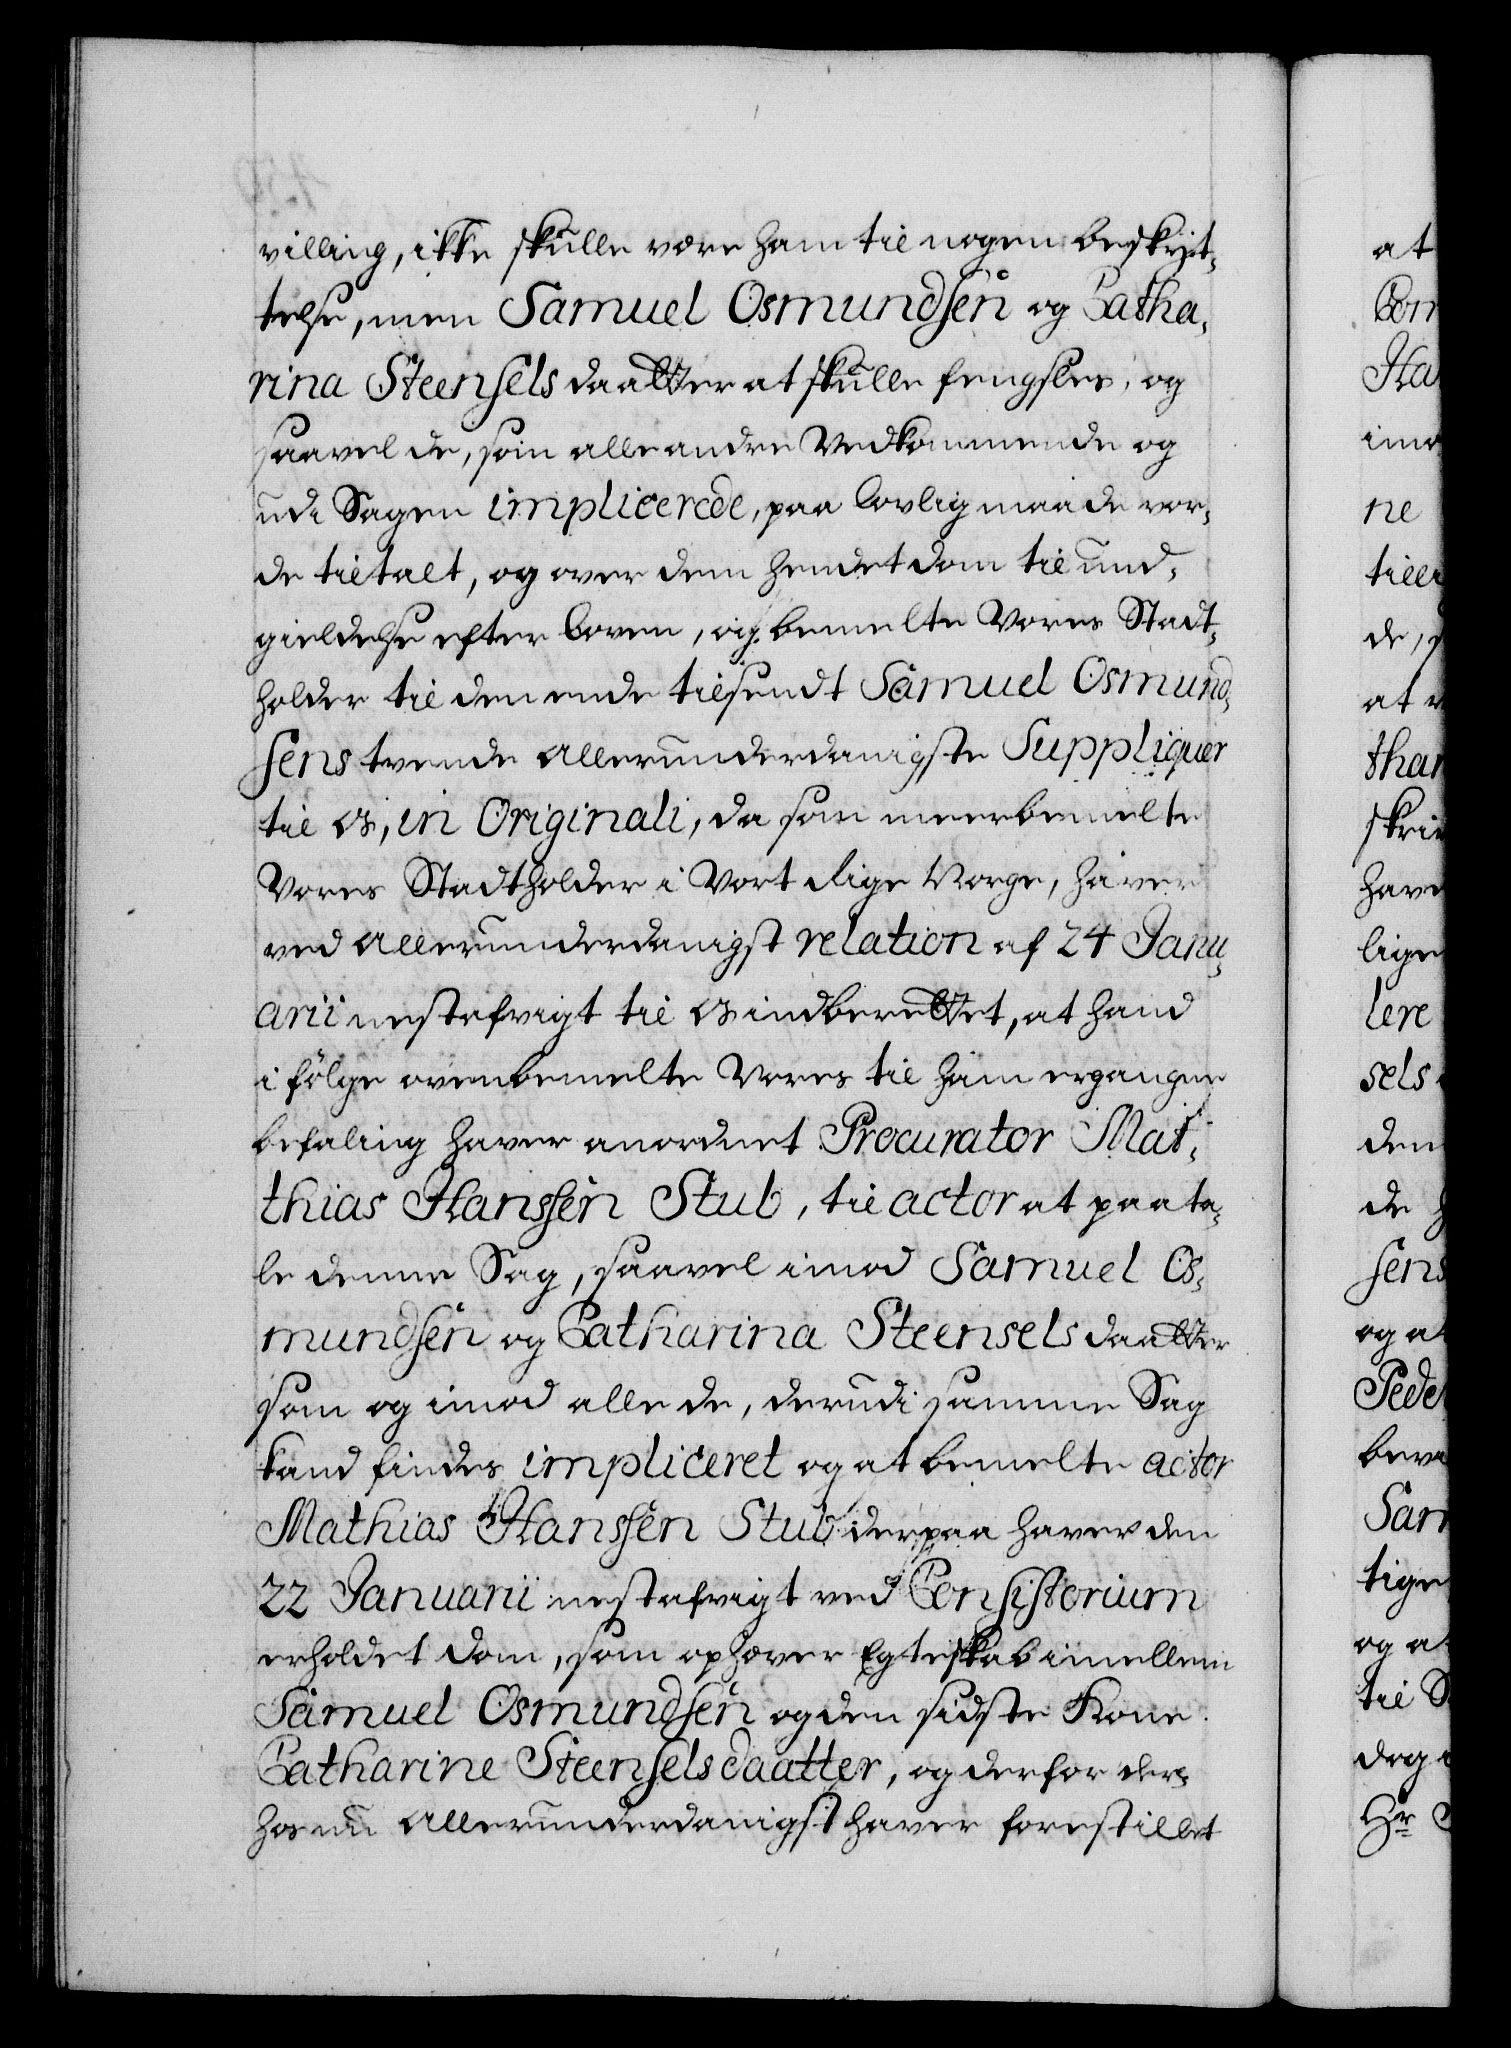 villing, ikke skulle være ham til nogen beskyt-
telse, men Samuel Osmundsen og Catha-
rina Steensels daatter at skulle fengsles, og
saavel de, som alle andre Vedkommende og
udi Sagen implicerede, paa lovlig maade vor-
de tiltalt, og over dem hendet dom til und-
gieldelse efter loven, og bemelte Vores Stadt-
holder til den ende tilsendt Samuel Osmund-
sens tvende allerunderdanigste Suppliquer
til os, in Originali, da som meerbemelte
Vores Stadtholder i Vort Rige Norge, haver
ved allerunderdanigst relation af 24 Janu-
arii nestafvigt til os indberettet, at hand
i følge ovenbemelte Vores til ham ergangne
befaling haver anordnet Procurator Mat-
thias Hanssen Stub, til actor at paata-
le denne Sag, saavel imod Samuel Os-
mundsen og Catharina Steensels daatter
som og imod alle de, der udi samme Sag
kand findes impliceret og at bemelte actor
Mathias Hanssen Stub derpaa haver den
22 Januarii nestafvigt ved Consistorium
erholdet dom, som ophæver Egteskab imellem
Samuel Osmundsen og den sidste Kone
Catharine Steensels daatter, og derfor der-
hos nu allerunderdanigst haver forestillet
at
Ha
ne
de,
at
skri
have
lige
lere
sels
den
de
sens
og at
Pede
Sam
tige
og a
til S
Hr